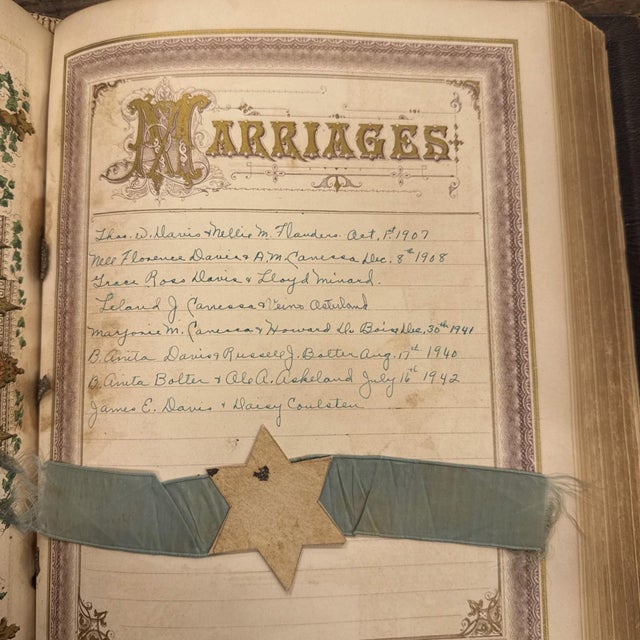 MARRIAGES
Thos. W. Davis & Nellie M. Flanders. Oct. 1st 1907
Nell Florence Davis & A.M. Canessa Dec. 8th 1908
Grace Ross Davis & Lloyd Minard.
Leland J. Canessa & Osterlund
Marjorie M. Canessa & Howard Du Bois, Dec, 30th 1941
B. Anita Davis & Russell J. Bolter Aug. 17th 1940
B. Anita Bolter & Ole A. Askeland July 16th 1942
James E. Davis & Daisy Coulsten